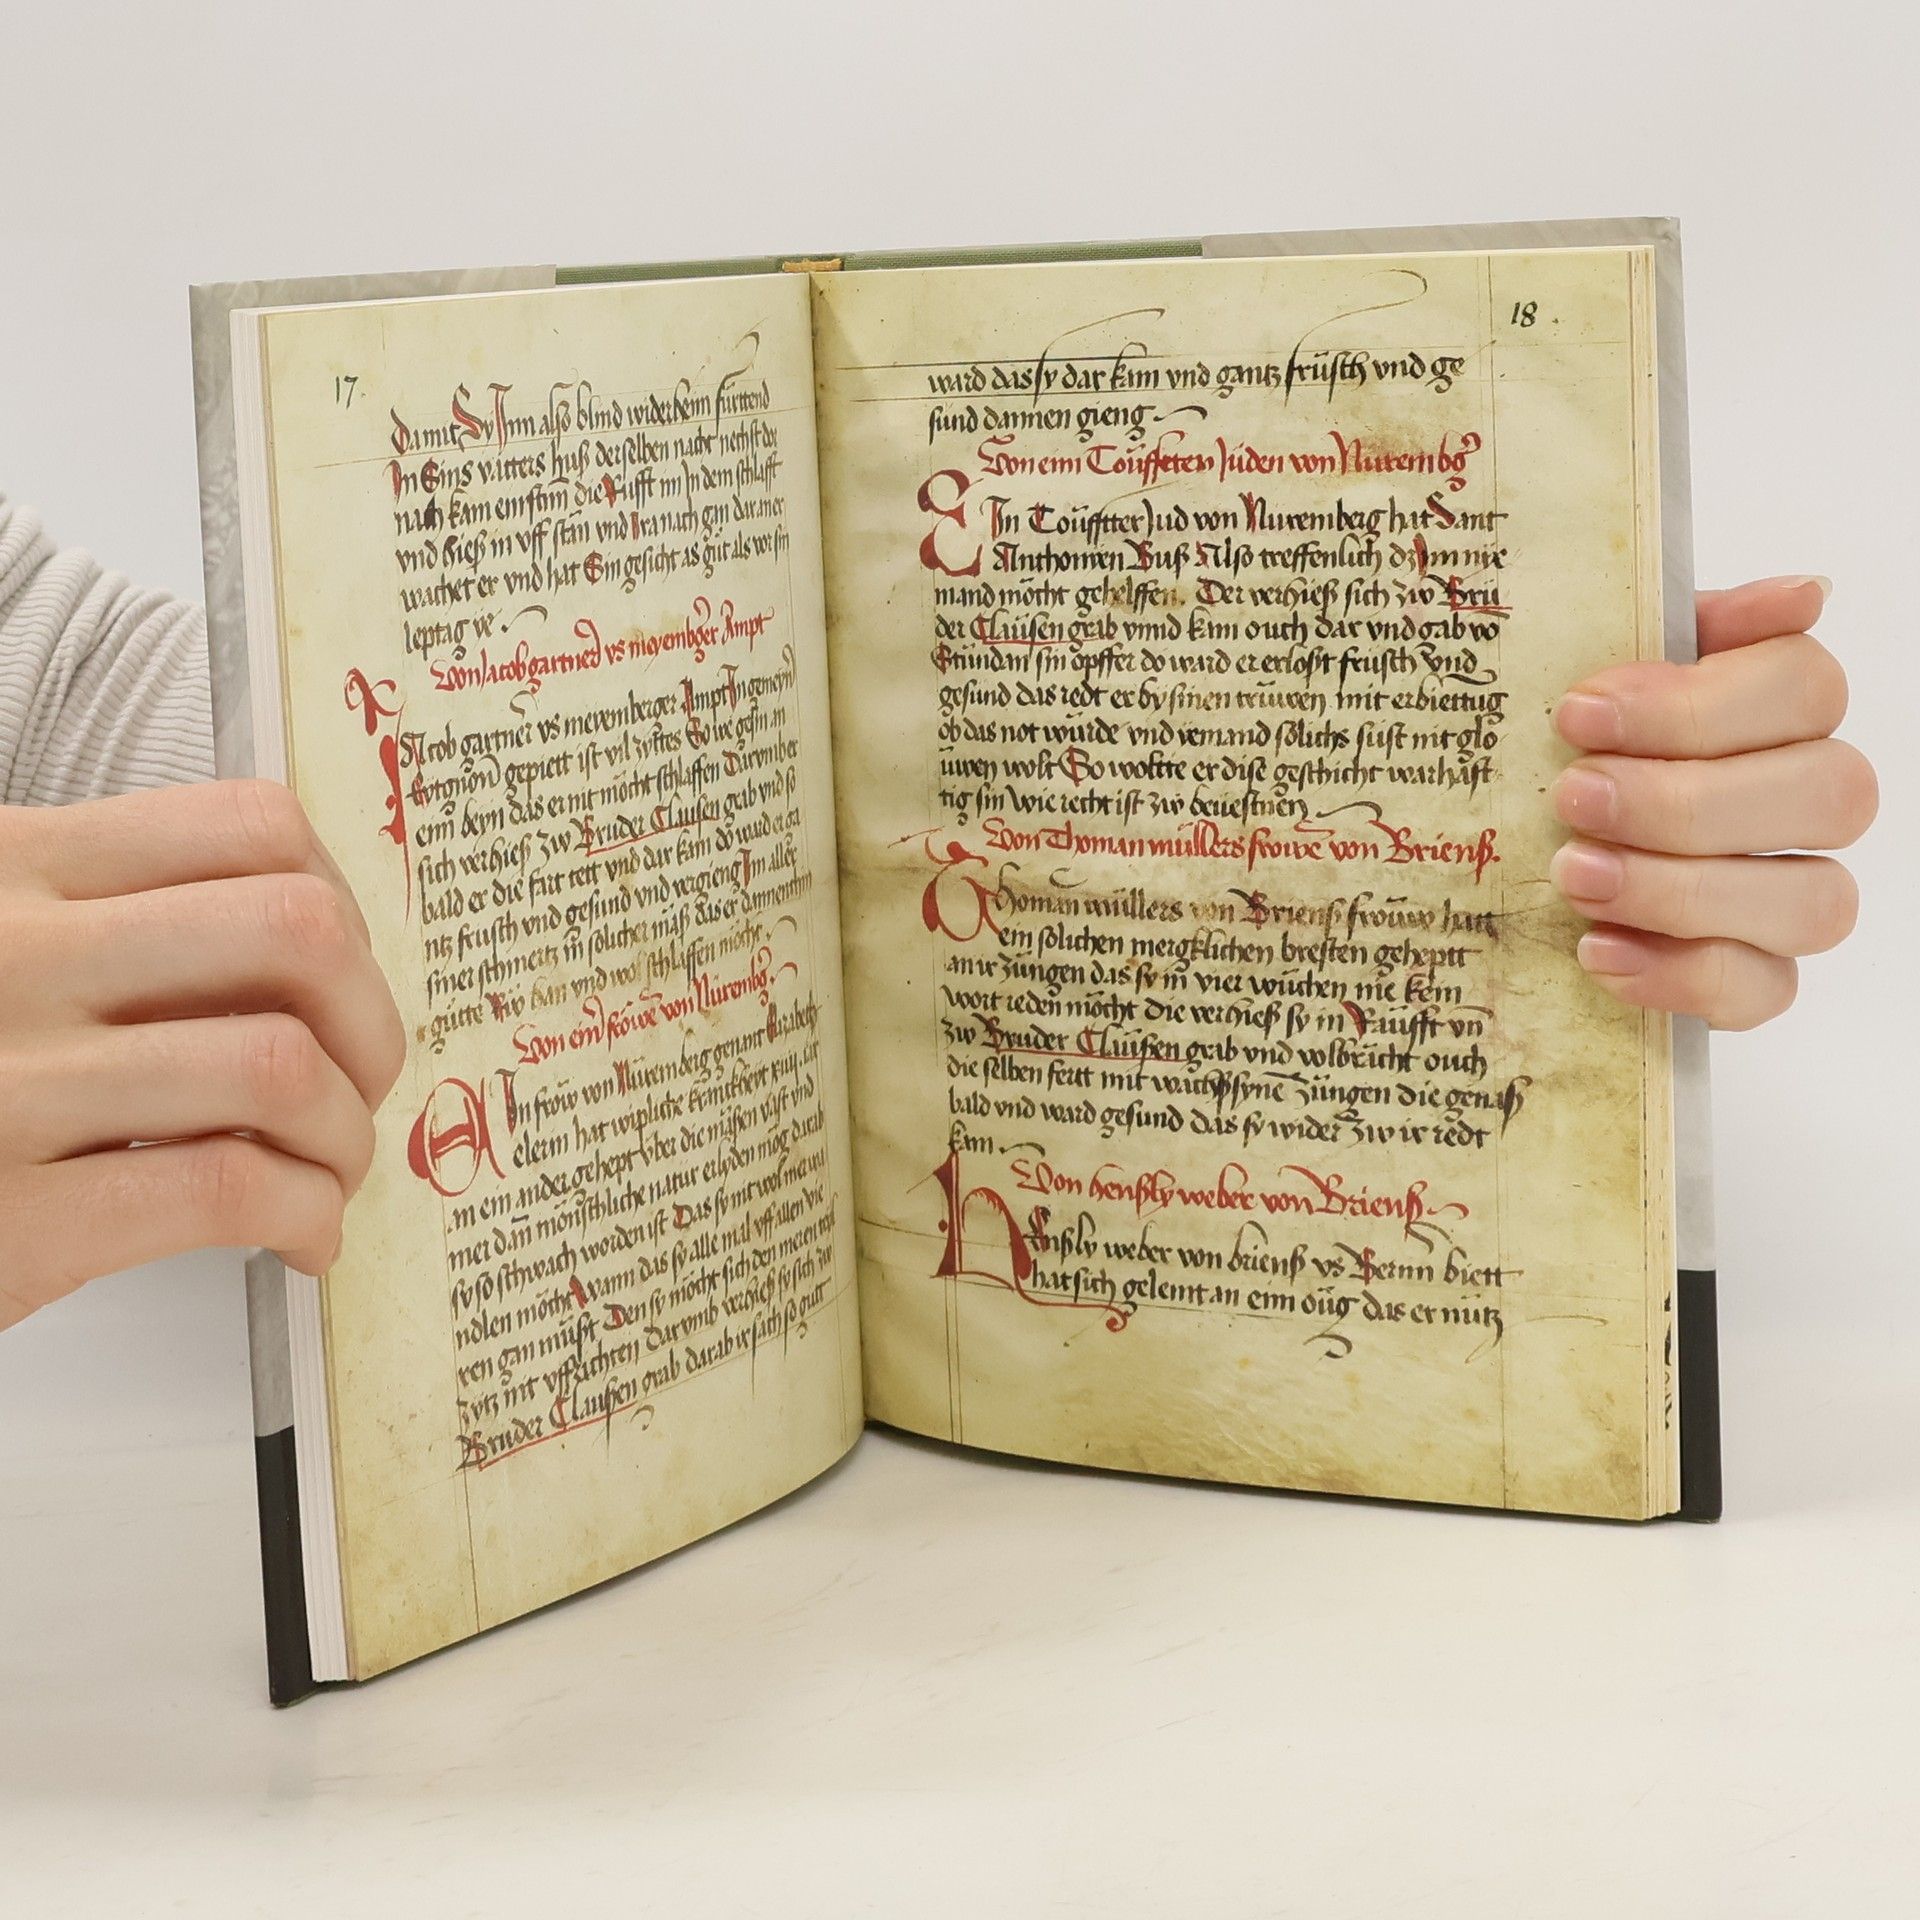 17.
Damit Sy Inn also blind widerheim fürttend
In Sins vatters huß derselben nacht nechst dar
nach kam ein stim̄ die Rufft im In dem schlafft
vnd hieß in vff stan vnd Ira nach gan dar an er
wachet er vnd hat Sin gesicht as güt als vor sin
leptag ye.
Von Jacob gartner vs meyemberger Ampt
Jacob gartner vs meyemberger Ampt In gemeyn
gepiett ist vil zyttes So we gesin an
eim beyn das er nit möcht schlaffen Darvmber
sich verhieß zw Bruder Clausen grab vnd so
bald er die fart tett vnd dar kam do ward er ga
ntz frusch vnd gesund vnd vergieng Im aller
siner schmertz in solicher maß das er dannenthin
gütte Rüw han vnd wol schlaffen möcht.
Von einer fröwe von Nüremberg.
Ein fröw von Nüremberg genant Elizabeth
elerin hat wipliche kranckheyt xiiij. iar
an ein ander gehept vber die massen vast vnd
mer dan̄ mönschliche natur erlyden mög darab
sy so schwach worden ist Das sy nit wol mer wa
ndlen möcht Wann das sy alle mal vff allen vie
ren gan müßt Den sy möcht sich den meren teyl
zytz nit vffrichten Darvmb verhieß sy sich zw
Bruder Claußen grab darab ir sach so gütt
18.
ward das sy dar kam vnd gantz früsch vnd ge
sund dannen gieng.
Von eim Toüfften Juden von Nürembg
Ein Toüffter Jud von Nüremberg hat Sant
Anthonien Buß Also treffenlich dz Im nie
mand möcht gehelffen. Der verhieß sich zw Brü
der Claüsen grab vnnd kam ouch dar vnd gab vō
Stündan sin opffer do ward er erloßt früsch vnd
gesund das redt er by sinen trüwen mit erbiettüg
ob das not würde vnd iemand sölichs süst nit glo
üwen wolt So woltte er dise geschicht warhaft
tig sin wie recht ist zw beüestnen
Von Thoman müllers frowe von Brienß.
Thoman müllers von Brienß froüw hatt
ein solichen mergklichen bresten geheptt
an ir züngen das sy in vier wüchen nie kein
wort reden möcht die verhieß sy in Raüfft vn̄
zw Bruder Claüßen grab vnd volbracht ouch
die selben fertt mit wachßyne züngen die genaß
bald vnd ward gesund das sy wider zw ir redt
kam.
Von henßly weber von Brienß.
Henßly weber von brienß vs Bernn biett
hat sich gelemt an eim oüg das er nütz